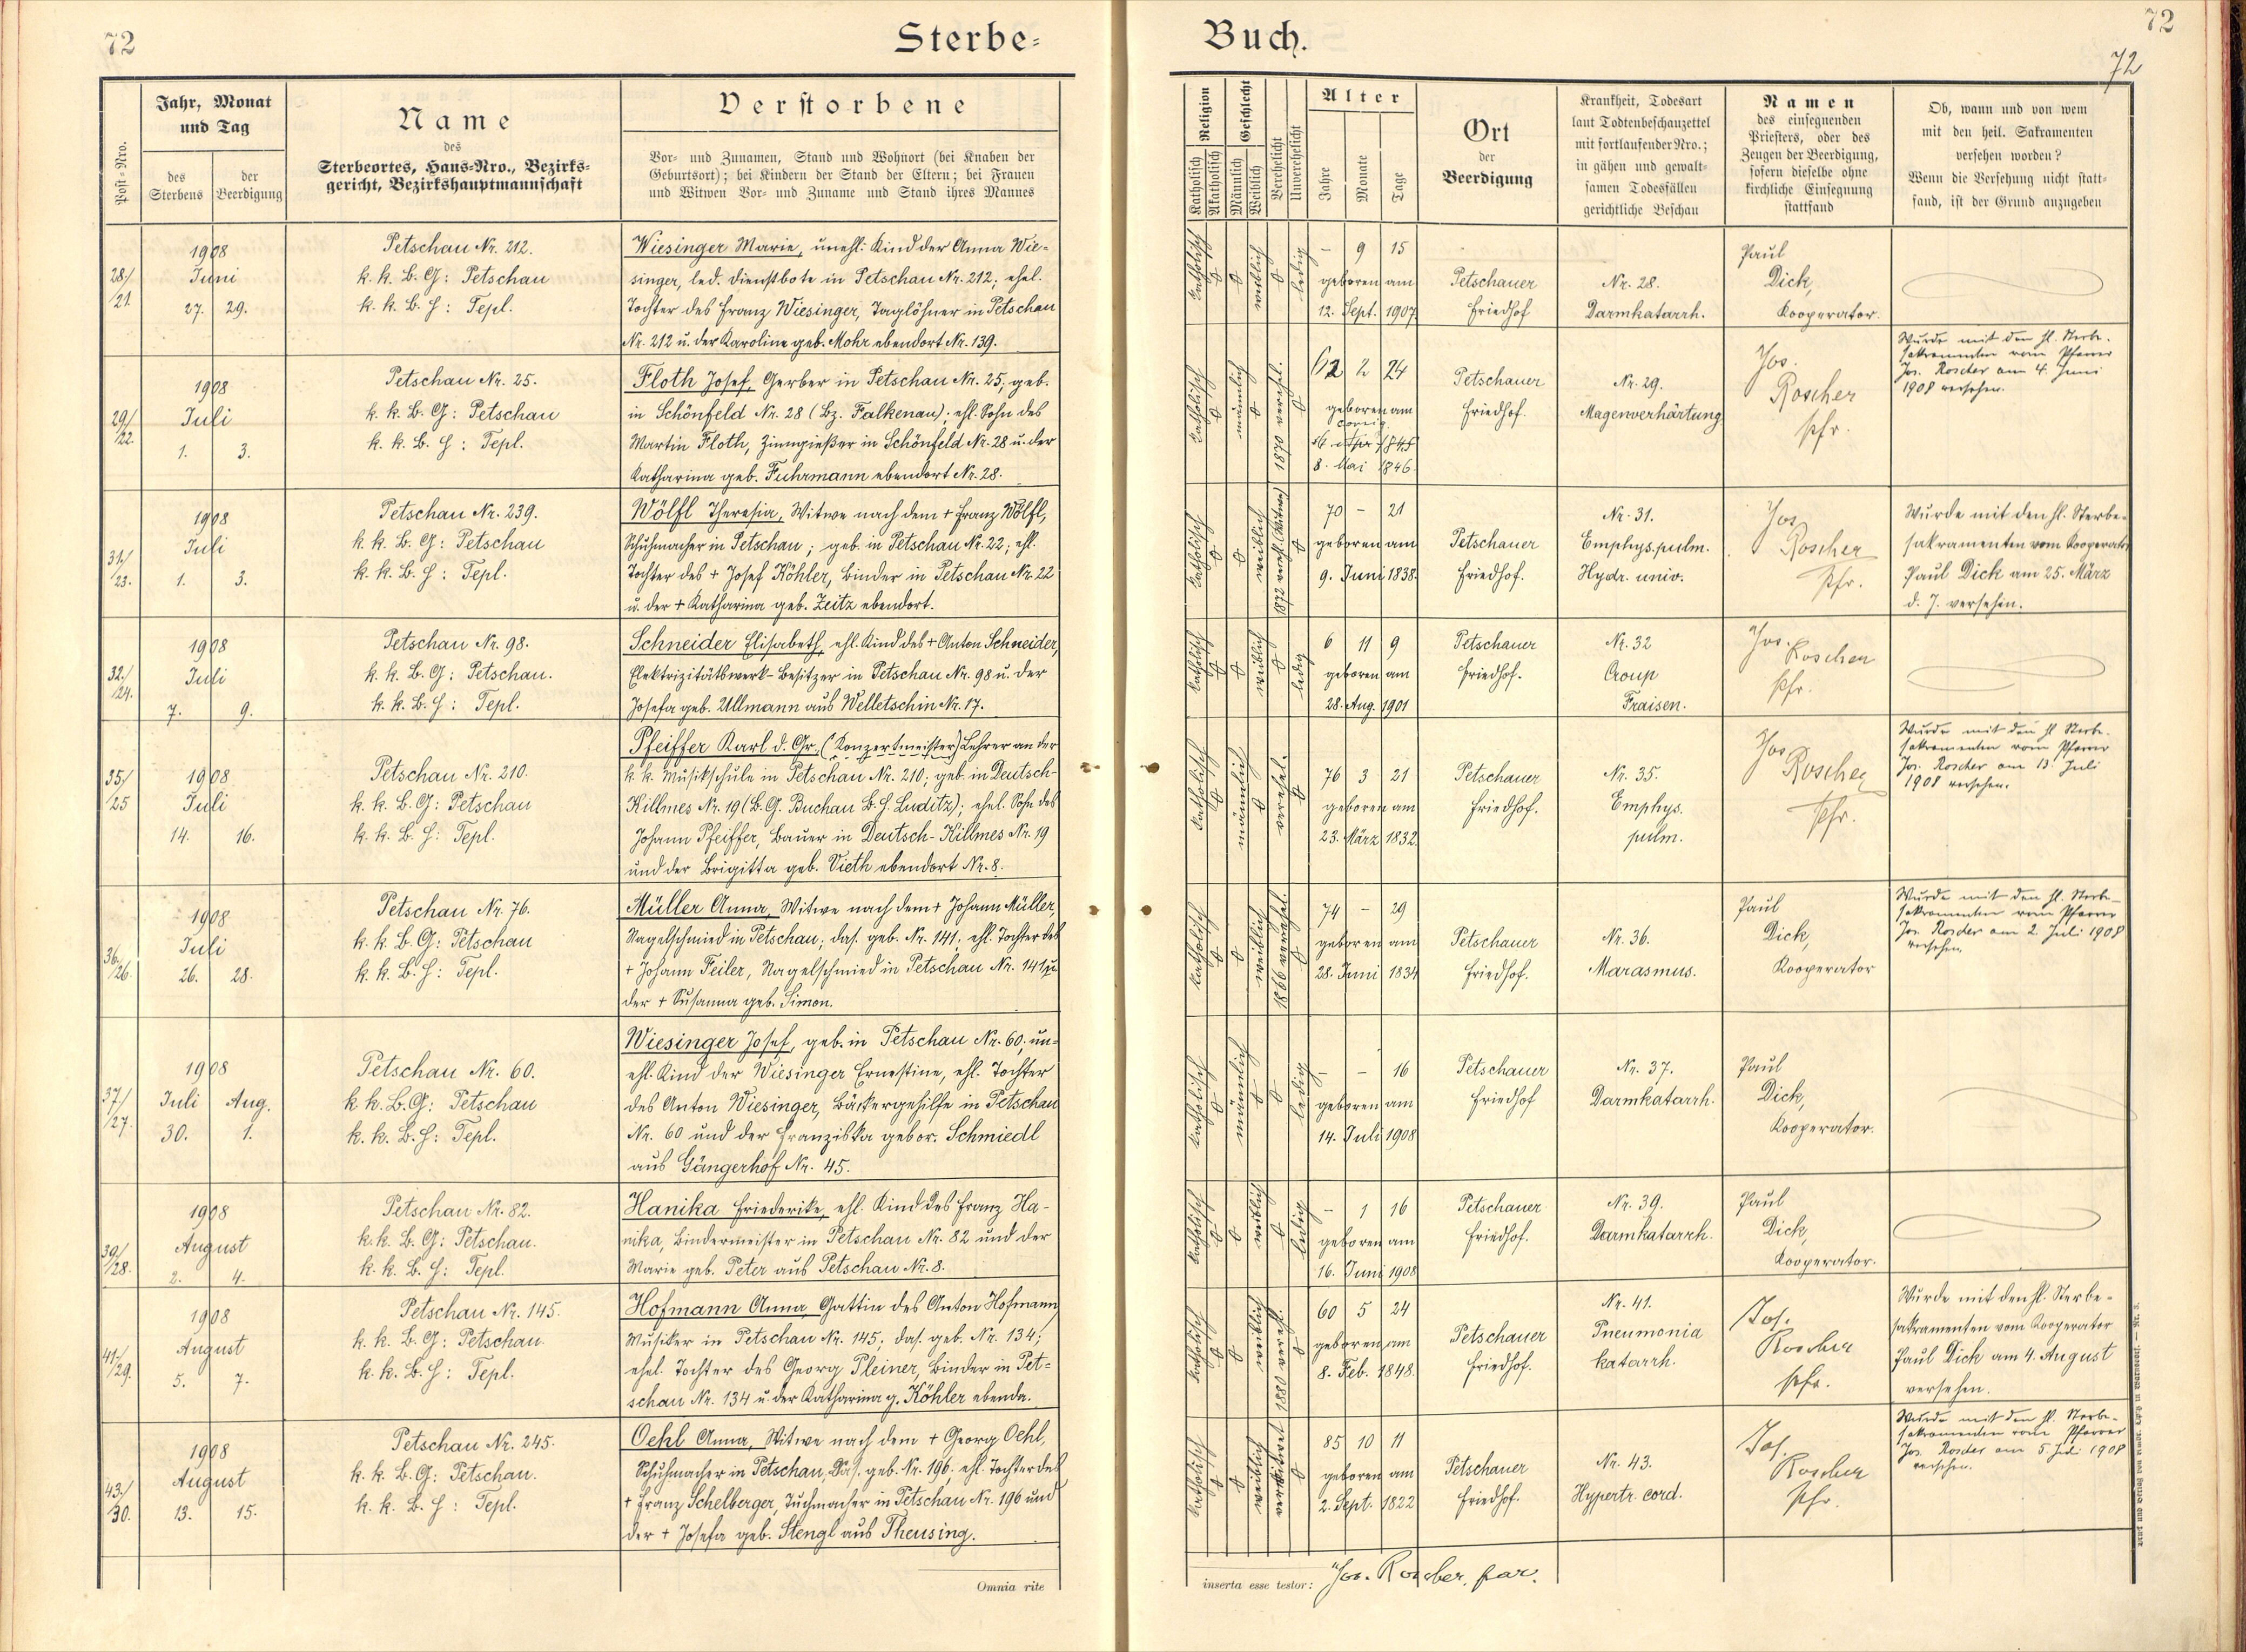 72
Sterbe-
Buch.
72
72
Post-Nro.
Jahr, Monat
und Tag
des
Sterbens
der
Beerdigung
Name
des
Sterbeortes, Haus-Nro., Bezirks-
gericht, Bezirkshauptmannschaft
Verstorbene
Vor- und Zunamen, Stand und Wohnort (bei Knaben der
Geburtsort); bei Kindern der Stand der Eltern; bei Frauen
und Witwen Vor- und Zuname und Stand ihres Mannes
Religion
Katholisch
Akatholisch
Geschlecht
Männlich
Weiblich
Verehelicht
Unverehelicht
Alter
Jahre
Monate
Tage
Ort
der
Beerdigung
Krankheit, Todesart
laut Todtenbeschauzettel
mit fortlaufender Nro.;
in gähen und gewalt-
samen Todesfällen
gerichtliche Beschau
Namen
des einsegnenden
Priesters, oder des
Zeugen der Beerdigung,
sofern dieselbe ohne
kirchliche Einsegnung
stattfand
Ob, wann und von wem
mit den heil. Sakramenten
versehen worden?
Wenn die Versehung nicht statt-
fand, ist der Grund anzugeben
28/
21.
1908
Juni
27. 29.
Petschau Nr. 212.
k. k. B. G: Petschau
k. k. B. H: Tepl.
Wiesinger Marie, unehl. Kind der Anna Wie-
singer, led. Dienstbote in Petschau Nr. 212; ehel.
Tochter des Franz Wiesinger, Taglöhner in Petschau
Nr. 212 u. der Karoline geb. Mohr ebendort Nr. 139.
katholisch
weiblich
ledig
- 9 15
geboren am
12. Sept. 1907
Petschauer
Friedhof
Nr. 28.
Darmkatarrh.
Paul
Dick,
Kooperator.
29/
22.
1908
Juli
1. 3.
Petschau Nr. 25.
k. k. B. G: Petschau
k. k. B. H: Tepl.
Floth Josef, Gerber in Petschau Nr. 25; geb.
in Schönfeld Nr. 28 (Bz. Falkenau); ehl. Sohn des
Martin Floth, Zinngießer in Schönfeld Nr. 28 u. der
Katharina geb. Fuhrmann ebendort Nr. 28.
katholisch
männlich
1870 verehl.
62 2 24
geboren am
8. Mai 1846.
Petschauer
Friedhof.
Nr. 29.
Magenverhärtung
Jos.
Roscher
Pfr.
Wurde mit den hl. Sterbe-
sakramenten vom Pfarrer
Jos. Roscher am 4. Juni
1908 versehen.
31/
23.
1908
Juli
1. 3.
Petschau Nr. 239.
k. k. B. G: Petschau
k. k. B. H: Tepl.
Wölfl Theresia, Witwe nach dem + Franz Wölfl,
Schuhmacher in Petschau; geb. in Petschau Nr. 22; ehl.
Tochter des + Josef Köhler, Binder in Petschau Nr. 22
u. der + Katharina geb. Zeitz ebendort.
katholisch
weiblich
1872 verehl. (Witwe)
70 - 21
geboren am
9. Juni 1838.
Petschauer
Friedhof.
Nr. 31.
Emphys. pulm.
Hydr. univ.
Jos.
Roscher
Pfr.
Wurde mit den hl. Sterbe-
sakramenten vom Kooperator
Paul Dick am 25. März
d. J. versehen.
32/
24.
1908
Juli
7. 9.
Petschau Nr. 98.
k. k. B. G: Petschau.
k. k. B. H: Tepl.
Schneider Elisabeth, ehl. Kind des + Anton Schneider,
Elektrizitätswerk-Besitzer in Petschau Nr. 98 u. der
Josefa geb. Ullmann aus Welletschin Nr. 17.
katholisch
weiblich
ledig
6 11 9
geboren am
28. Aug. 1901
Petschauer
Friedhof.
Nr. 32
Croup
Fraisen.
Jos.
Roscher
Pfr.
35/
25
1908
Juli
14. 16.
Petschau Nr. 210.
k. k. B. G: Petschau
k. k. B. H: Tepl.
Pfeiffer Karl d. Gr. (Konzertmeister) Lehrer an der
k. k. Musikschule in Petschau Nr. 210; geb. in Deutsch-
Killmes Nr. 19 (B. G. Buchau B. H. Luditz); ehel. Sohn des
Johann Pfeiffer, Bauer in Deutsch-Killmes Nr. 19
und der Brigitta geb. Vieth ebendort Nr. 8.
katholisch
männlich
verehel.
76 3 21
geboren am
23. März 1832.
Petschauer
Friedhof.
Nr. 35.
Emphys.
pulm.
Jos.
Roscher
Pfr.
Wurde mit den hl. Sterbe-
sakramenten vom Pfarrer
Jos. Roscher am 13. Juli
1908 versehen.
36/
26.
1908
Juli
26. 28.
Petschau Nr. 76.
k. k. B. G: Petschau
k. k. B. H: Tepl.
Müller Anna, Witwe nach dem + Johann Müller,
Nagelschmied in Petschau; das. geb. Nr. 141; ehl. Tochter des
+ Johann Feiler, Nagelschmied in Petschau Nr. 141 u.
der + Susanna geb. Simon.
katholisch
weiblich
1866 verehel.
74 - 29
geboren am
28. Juni 1834
Petschauer
Friedhof.
Nr. 36.
Marasmus.
Paul
Dick,
Kooperator
Wurde mit den hl. Sterbe-
sakramenten vom Pfarrer
Jos. Roscher am 2. Juli 1908
versehen.
37/
27.
1908
Juli Aug.
30. 1.
Petschau Nr. 60.
k. k. B. G: Petschau
k. k. B. H: Tepl.
Wiesinger Josef, geb. in Petschau Nr. 60; un-
ehl. Kind der Wiesinger Ernestine, ehl. Tochter
des Anton Wiesinger, Bäckergehilfe in Petschau
Nr. 60 und der Franziska gebor. Schmiedl
aus Gängerhof Nr. 45.
katholisch
männlich
ledig
- - 16
geboren am
14. Juli 1908
Petschauer
Friedhof
Nr. 37.
Darmkatarrh.
Paul
Dick,
Kooperator.
39/
28.
1908
August
2. 4.
Petschau Nr. 82.
k. k. B. G: Petschau.
k. k. B. H: Tepl.
Hanika Friederike, ehl. Kind des Franz Ha-
nika, Bindermeister in Petschau Nr. 82 und der
Marie geb. Peter aus Petschau Nr. 8.
katholisch
weiblich
ledig
- 1 16
geboren am
16. Juni 1908
Petschauer
Friedhof.
Nr. 39.
Darmkatarrh.
Paul
Dick,
Kooperator.
41/
29.
1908
August
5. 7.
Petschau Nr. 145.
k. k. B. G: Petschau.
k. k. B. H: Tepl.
Hofmann Anna, Gattin des Anton Hofmann,
Musiker in Petschau Nr. 145; das. geb. Nr. 134;
ehel. Tochter des Georg Pleiner, Binder in Pet-
schau Nr. 134 u. der Katharina g. Köhler ebenda.
katholisch
weiblich
1880 verehl.
60 5 24
geboren am
8. Feb. 1848.
Petschauer
Friedhof.
Nr. 41.
Pneumonia
katarrh.
Jos.
Roscher
Pfr.
Wurde mit den hl. Sterbe-
sakramenten vom Kooperator
Paul Dick am 4. August
versehen.
43/
30.
1908
August
13. 15.
Petschau Nr. 245.
k. k. B. G: Petschau.
k. k. B. H: Tepl.
Oehl Anna, Witwe nach dem + Georg Oehl,
Schuhmacher in Petschau, Das. geb. Nr. 196. ehl. Tochter des
+ Franz Schelberger, Tuchmacher in Petschau Nr. 196 und
der + Josefa geb. Stengl aus Theusing.
katholisch
weiblich
verwitwet
85 10 11
geboren am
2. Sept. 1822
Petschauer
Friedhof.
Nr. 43.
Hypertr. cord.
Jos.
Roscher
Pfr.
Wurde mit den hl. Sterbe-
sakramenten vom Pfarrer
Jos. Roscher am 5. Juli 1908
versehen.
Omnia rite
inserta esse testor: Jos. Roscher, par.